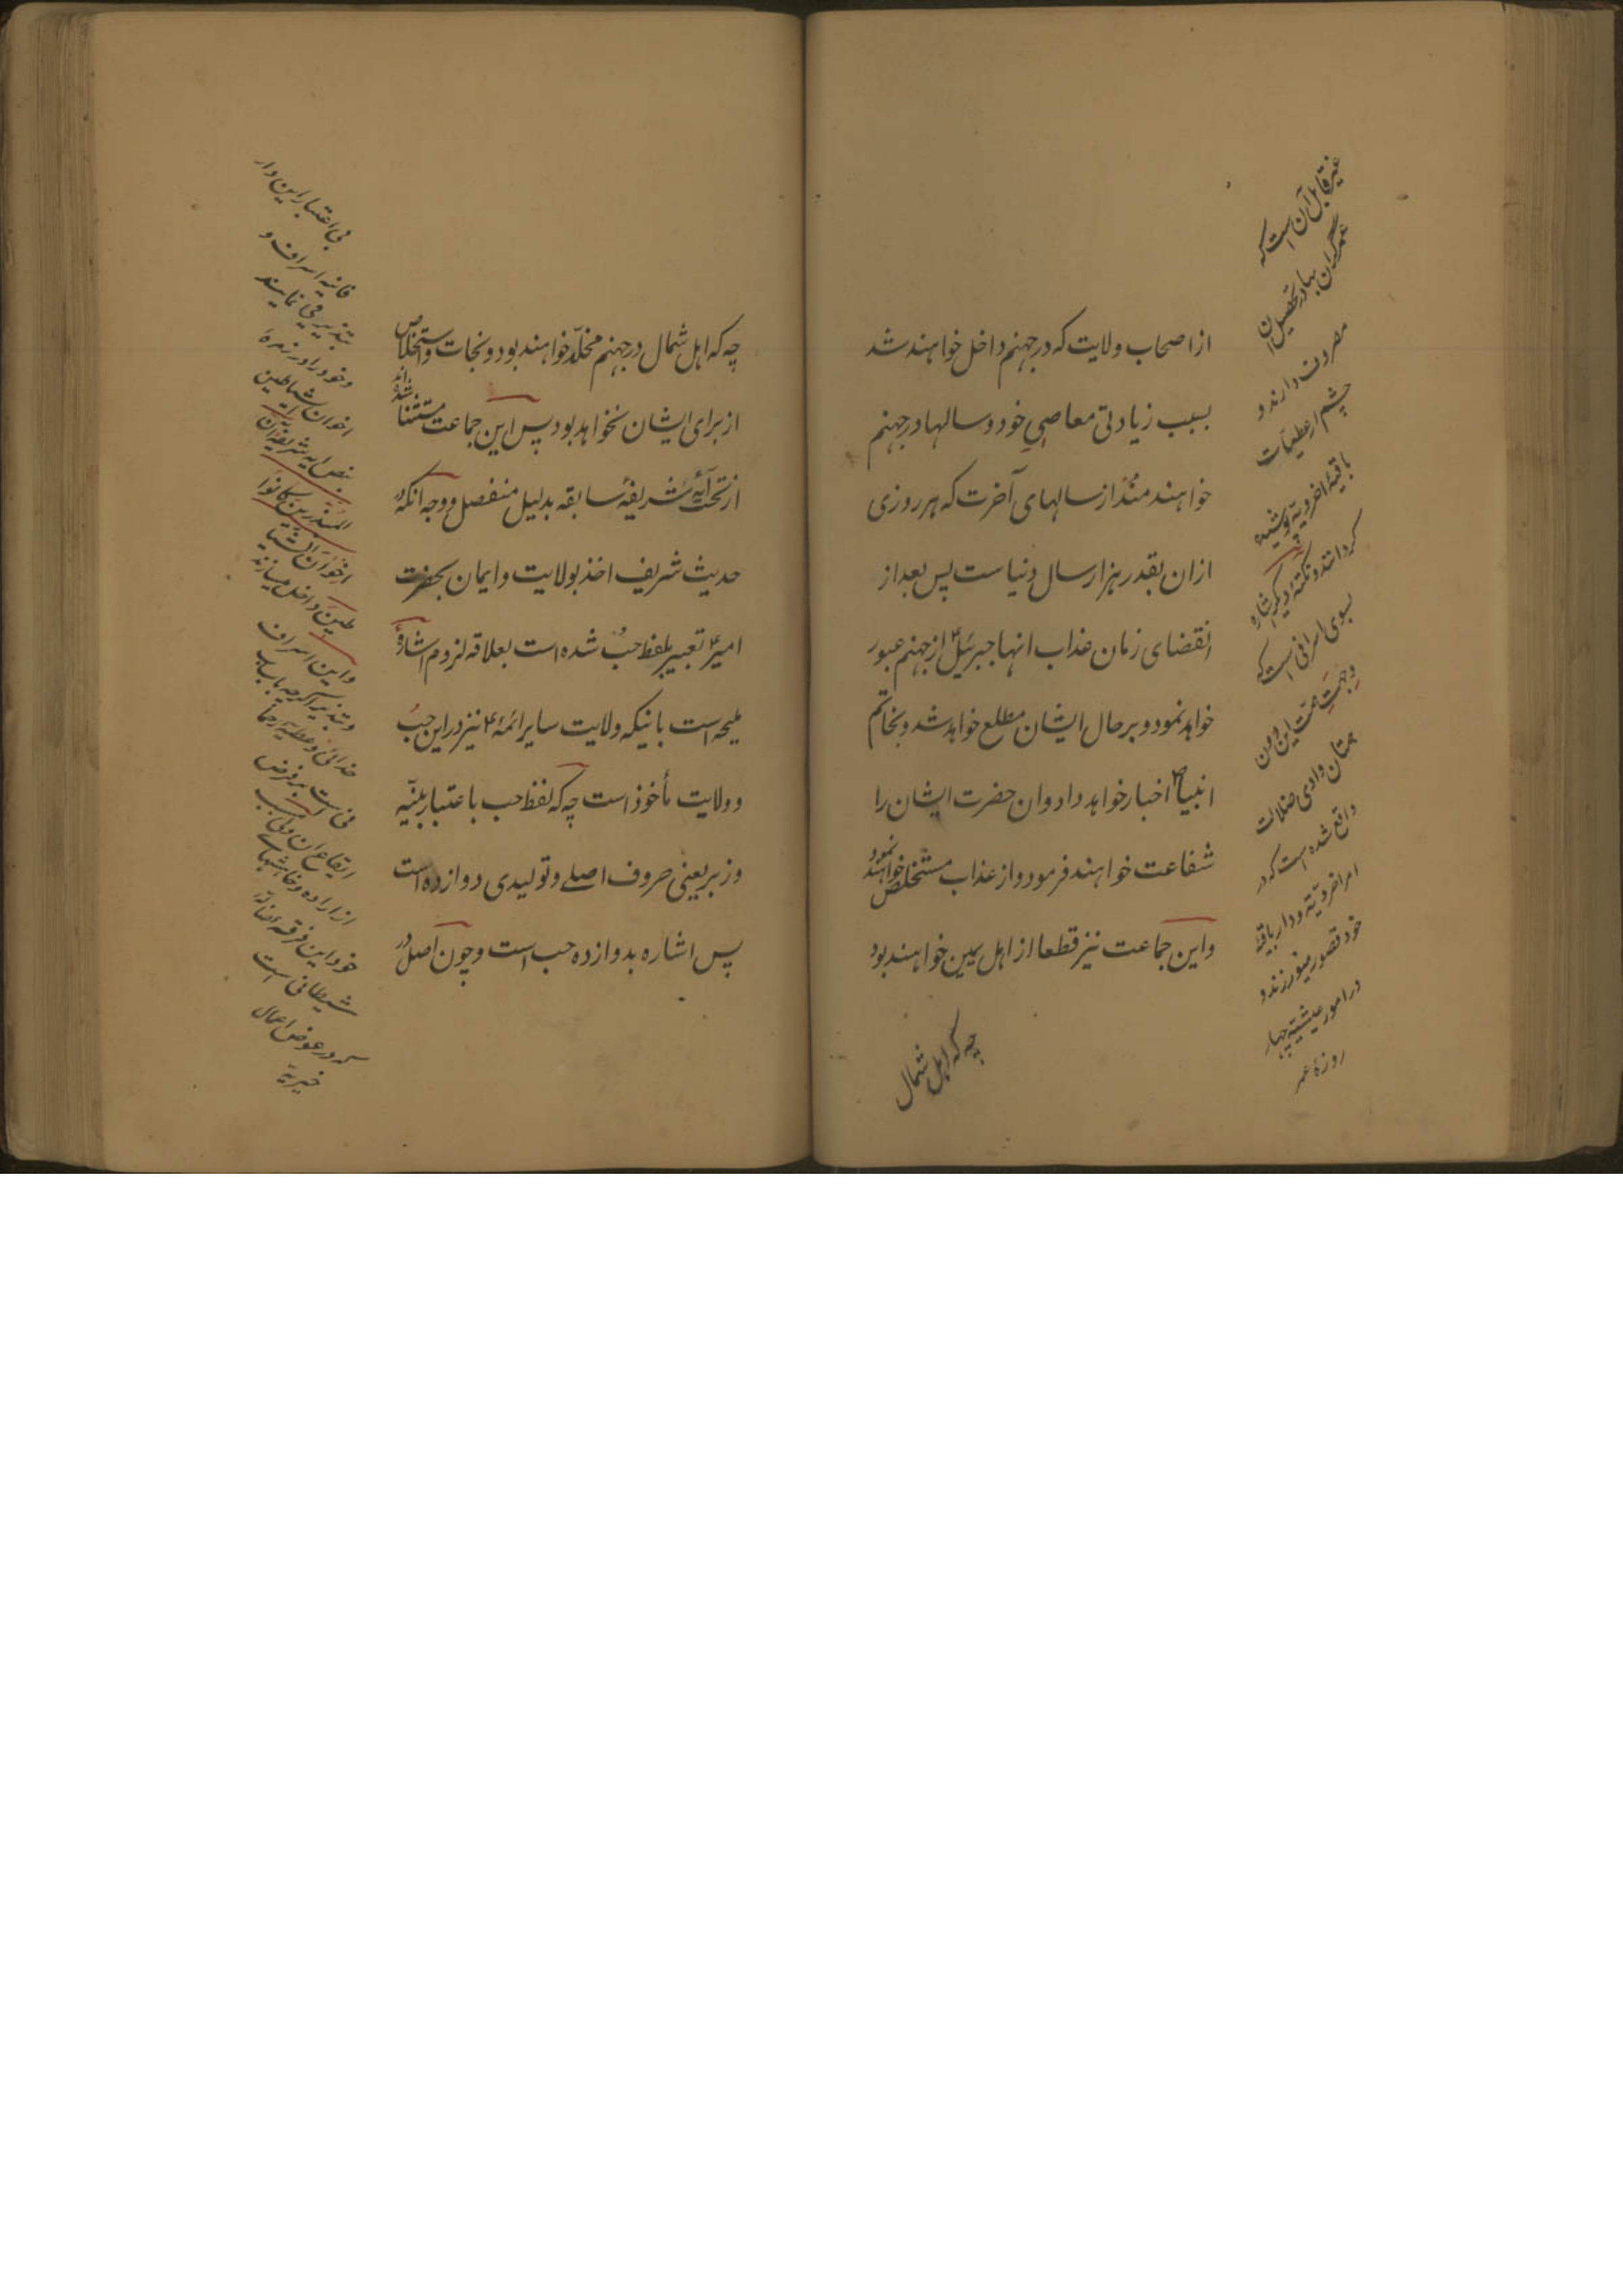 از اصحاب ولایت که در جهنم داخل خواهند شد
بسبب زیادتی معاصی خود و سالها در جهنم
خواهند ماند از سالهای آخرت که هر روزی
ازان بقدر هزار سال دنیا ست پس بعد از
انقضای زمان عذاب انها جبرئیل ع از جهنم عبور
خواهد نمود و بر حال ایشان مطلع خواهد شد و بخاتم
انبیا ص اخبار خواهد داد و ان حضرت ایشان را
شفاعت خواهند فرمود و از عذاب مستخلص خواهند نمود
و این جماعت نیز قطعا از اهل یمین خواهند بود
چه که اهل شمال
غیر قابل آن است که
عمر گران بها در تحصیل ان
مصروف دارند و
چشم از عطیات
باقیهٔ اخرویه پوشیده
گردانند و نکته دیگر اشاره
بسوی اسرافی است که
وادی ضلالت
واقع شده است که در
امر اخرویه و دار باقیهٔ
خود قصور میورزند و
در امور معیشتیه چهار
روزهٔ عمر
چه که اهل شمال در جهنم مخلّد خواهند بود و نجات و استخلاص
از برای ایشان نخواهد بود پس این جماعت مستثنا شده‌اند
از تحت آیهٔ شریفهٔ سابقه بدلیل منفصل و وجه انکه در
حدیث شریف اخذ بولایت و ایمان بحضرت
امیر ع تعبیر بلفظ حبّ شده است بعلاقه لزوم اشارهٔ
ملیحه است بانیکه ولایت سایر ائمهٔ ع نیز در این حبّ
و ولایت مأخوذ است چه که لفظ حب باعتبار بینّه
و زبر یعنی حروف اصلی و تولیدی دوازده است
پس اشاره بدوازده حب است و چون اصل در
بی اعتبار این دار
فانیه اسراف و
تبذیر می نمایند
و خود را در زمره
اخوان شیاطین
بنص ایه شریفه ان
المبذرین کانوا
اخوان الشیا
طین داخل میسازند
و این اسراف
و تبذیر اگرچه باسباب
فی است بر فرض
ایقاع ان
از اراده و خواهشهای
خود این فرقه ضاله
شیطانی است
که در عوض اعمال
خیریه